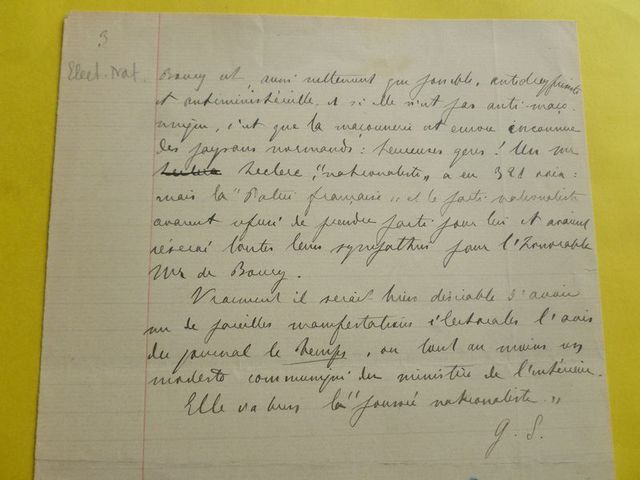 3
Elect. Nat.
Boury est, aussi nettement que possible, antidreyfusiste
et antiministérielle. Et si elle n'est pas anti-maçon
nique, c'est que la maçonnerie est encore inconnue
des paysans normands : heureuses gens ! Un Mr
Leclerc, "nationaliste", a eu 321 voix :
mais la "Patrie française" et le parti nationaliste
avaient refusé de prendre parti pour lui et avaient
réservé toutes leurs sympathies pour l'honorable
Mr de Boury.
Vraiment il serait bien désirable d'avoir
sur de pareilles manifestations électorales l'avis
du journal le Temps, ou tout au moins un
modeste communiqué du ministère de l'intérieur.
Elle va bien la "poussée nationaliste".
G. S.